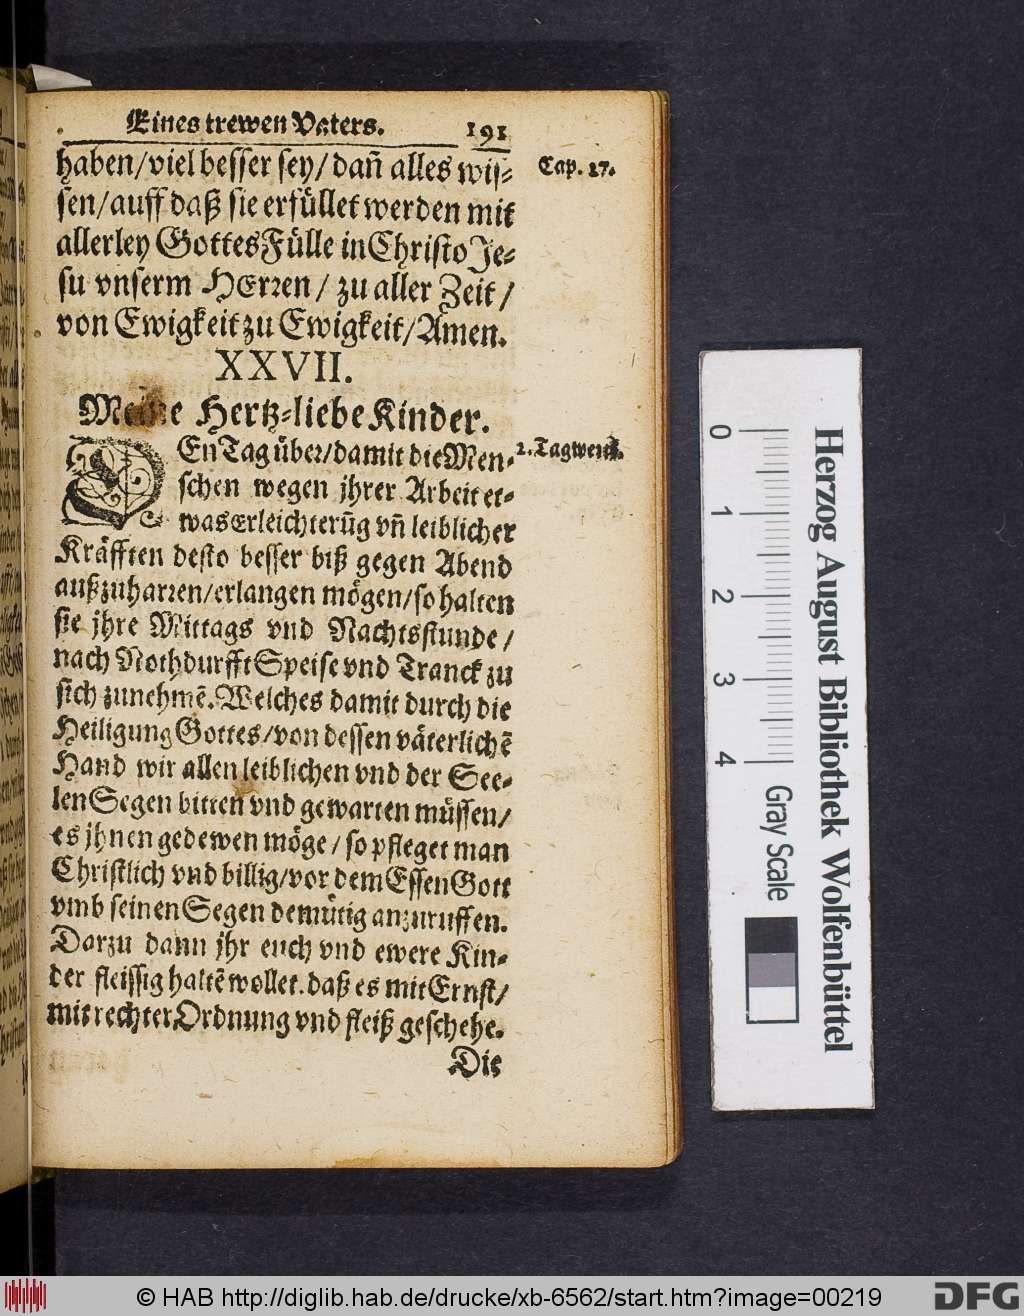 Eines trewen Vaters. 191
haben/viel besser sey/dañ alles wis⸗
Cap. 27.
sen/auff daß sie erfüllet werden mit
allerley Gottes Fülle in Christo Je⸗
su vnserm HErren / zu aller Zeit /
von Ewigkeit zu Ewigkeit/Amen.
XXVII.
Meine Hertz⸗liebe Kinder.
DEn Tag über/damit die Men⸗
2. Tagwerck.
schen wegen jhrer Arbeit et⸗
was Erleichterũg vñ leiblicher
Kräfften desto besser biß gegen Abend
außzuharren/erlangen mögen/so halten
sie jhre Mittags vnd Nachtsstunde /
nach Nothdurfft Speise vnd Tranck zu
sich zunehmẽ. Welches damit durch die
Heiligung Gottes/von dessen väterlichẽ
Hand wir allen leiblichen vnd der See⸗
len Segen bitten vnd gewarten müssen/
es jhnen gedewen möge / so pfleget man
Christlich vnd billig/vor dem Essen Gott
vmb seinen Segen demütig anzuruffen.
Darzu dann jhr euch vnd ewere Kin⸗
der fleissig haltẽ wollet. daß es mit Ernst/
mit rechter Ordnung vnd fleiß geschehe.
Die
0 1 2 3 4 Gray Scale
Herzog August Bibliothek Wolfenbüttel
© HAB http://diglib.hab.de/drucke/xb-6562/start.htm?image=00219
DFG